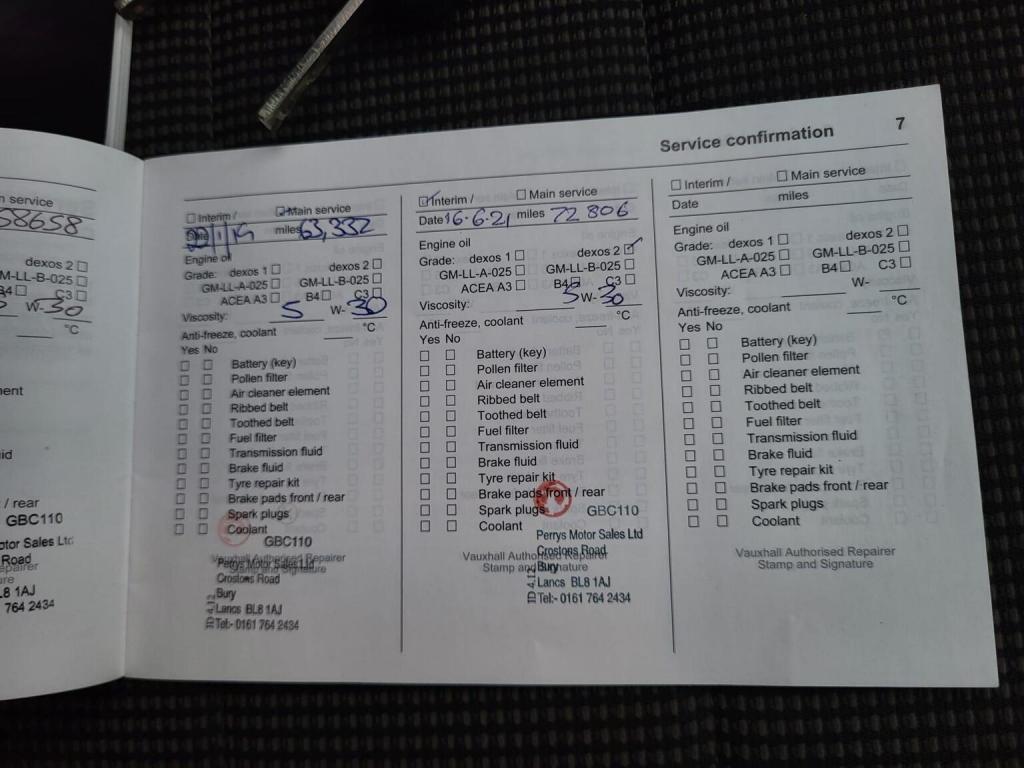 Service confirmation 7
n service
58658
dexos 2
GM-LL-B-025
B4 C3
W-30
°C
ment
uid
/ rear
GBC110
otor Sales Ltd
Road
epairer
ure
L8 1AJ
764 2434
Interim / Main service
Date /1/19 miles 63,332
Engine oil
Grade: dexos 1 dexos 2
GM-LL-A-025 GM-LL-B-025
ACEA A3 B4 C3
Viscosity: 5 W- 30
Anti-freeze, coolant °C
Yes No
Battery (key)
Pollen filter
Air cleaner element
Ribbed belt
Toothed belt
Fuel filter
Transmission fluid
Brake fluid
Tyre repair kit
Brake pads front / rear
Spark plugs
Coolant
GBC110
Vauxhall Authorised Repairer
Stamp and Signature
Perrys Motor Sales Ltd
Crostons Road
Bury
Lancs BL8 1AJ
Tel:- 0161 764 2434
Interim / Main service
Date 16-6-21 miles 72 806
Engine oil
Grade: dexos 1 dexos 2
GM-LL-A-025 GM-LL-B-025
ACEA A3 B4 C3
Viscosity: 5 W- 30
Anti-freeze, coolant °C
Yes No
Battery (key)
Pollen filter
Air cleaner element
Ribbed belt
Toothed belt
Fuel filter
Transmission fluid
Brake fluid
Tyre repair kit
Brake pads front / rear
Spark plugs
Coolant
GBC110
Vauxhall Authorised Repairer
Stamp and Signature
Perrys Motor Sales Ltd
Crostons Road
Bury
Lancs BL8 1AJ
Tel:- 0161 764 2434
Interim / Main service
Date miles
Engine oil
Grade: dexos 1 dexos 2
GM-LL-A-025 GM-LL-B-025
ACEA A3 B4 C3
Viscosity: W-
Anti-freeze, coolant °C
Yes No
Battery (key)
Pollen filter
Air cleaner element
Ribbed belt
Toothed belt
Fuel filter
Transmission fluid
Brake fluid
Tyre repair kit
Brake pads front / rear
Spark plugs
Coolant
Vauxhall Authorised Repairer
Stamp and Signature